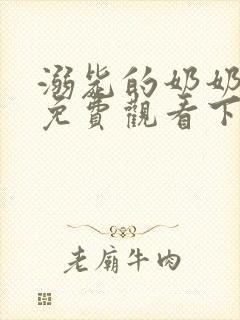 溺毙的奶奶
免費觀看下
老廟牛肉